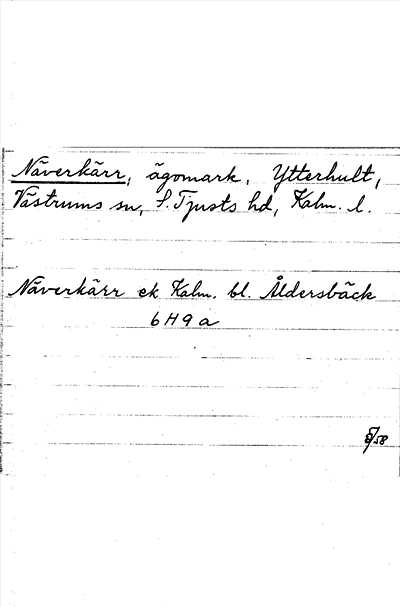 Näverkärr, ägomark, Ytterhult,
Västrums sn, S. Tjusts hd, Kalm. l.
Näverkärr ek Kalm. bl. Åldersbäck
6H9a
5/58